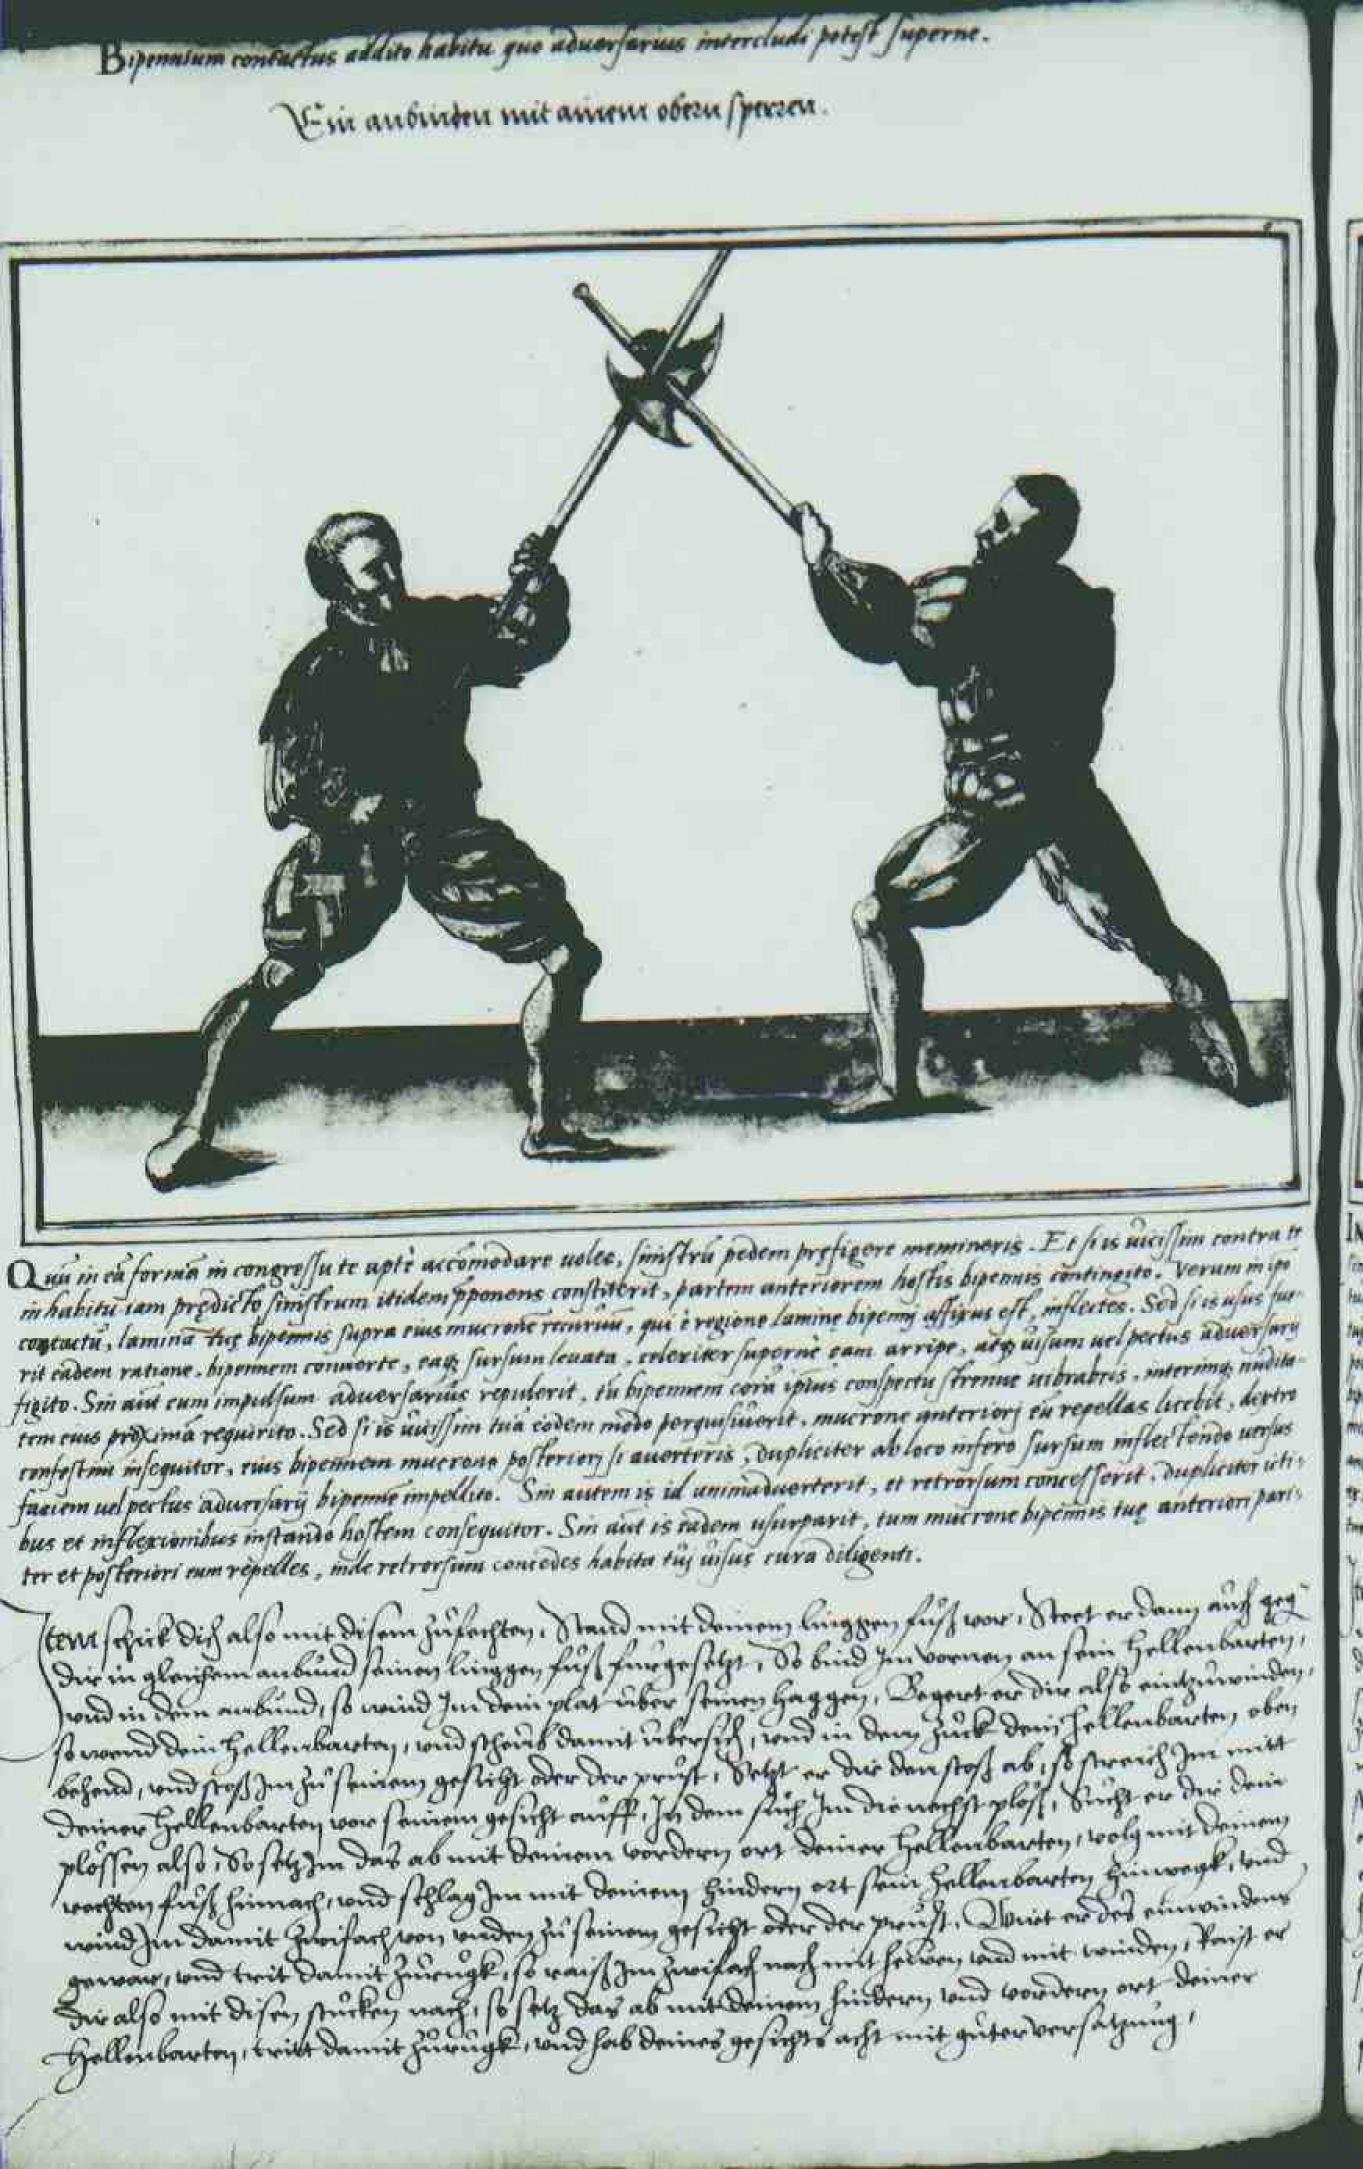 Bipennium contactus addito habitu quo adversarius intercludi potest superne.
Ein anbinden mit ainem obern sperren.
Quũ in eã formã in congressu te aptè accõmodare voles, sinistrũ pedem pręfigere memineris. Et si is vicissim contra te
in habitu iam prędicto sinistrum itidem p̃ponens constiterit, partem anteriorem hostis bipennis contingito. Verum in ipso
contactu, laminã tuę bipennis supra eius mucronẽ recurvũ, qui è regione laminę bipennis affixus est, inflectes. Sed si is usus fue-
rit eãdem ratione, bipennem converte, eaq; sursum levata, celeriter supernè eam arripe, atq; visum vel pectus adversarij
figito. Sin aũt eum impulsum adversarius repulerit, tu bipennem corã ipsius conspectu strenue vibrabis, interimq; nudita-
tem eius proximã requirito. Sed si is vicissim tuã eodem modo perquisiverit, mucrone anteriori eũ repellas licebit, dextro
confestim insequitor, eius bipennem mucrone posteriori si averteris, dupliciter ab loco infero sursum inflectendo versus
faciem vel pectus adversarij bipennẽ impellito. Sin autem is id animadverterit, et retrorsum concesserit, dupliciter icti-
bus et inflexionibus instando hostem consequitor. Sin aũt is eadem usurparit, tum mucrone bipennis tuę anteriori pari-
ter et posteriori eum repelles, inde retrorsum concedes habita tui visus cura diligenti.
Item schick dich also mit disem zůfechten, Stand mit deinem linggen fůß vor, Steet er dann auch geg
dir in gleichem anbund seinen linggen fůß fürgesetzt, So bind Im vornen an sein Hellenbarten,
und in dem anbund, so wind Im dein plat über seinen haggen, Begert er dir also einzuwinden,
so wend dein Hellenbarten, und scheub damit übersich, und in dem zuck dein Hellenbarten oben
behend, und stoß Im zů seinem gesicht oder der prust, Setzt er dir den stoß ab, so streich Im mitt
deiner Hellenbarten vor seinem gesicht auff, In dem sůch Im die nechst plöß, Sůcht er dir dein
plössen also, So setz Im das ab mit deinem vordern ort deiner Hellenbarten, volg mit deinem
rechten fůß hinnach, und schlag Im mit deinem hindern ort sein Hellenbarten hinwegk, und
wind Im damit zwifach von unden zů seinem gesicht oder der prust, Wirt er des einwindens
gewar, und trit damit zurugk, so raiß Im zwifach nach mit hewen und mit winden, Raist er
dir also mit disen stucken nach, so setz das ab mit deinem hindern und vordern ort deiner
Hellenbarten, tritt damit zurugk, und hab deines gesichts acht mit gůter versatzung,